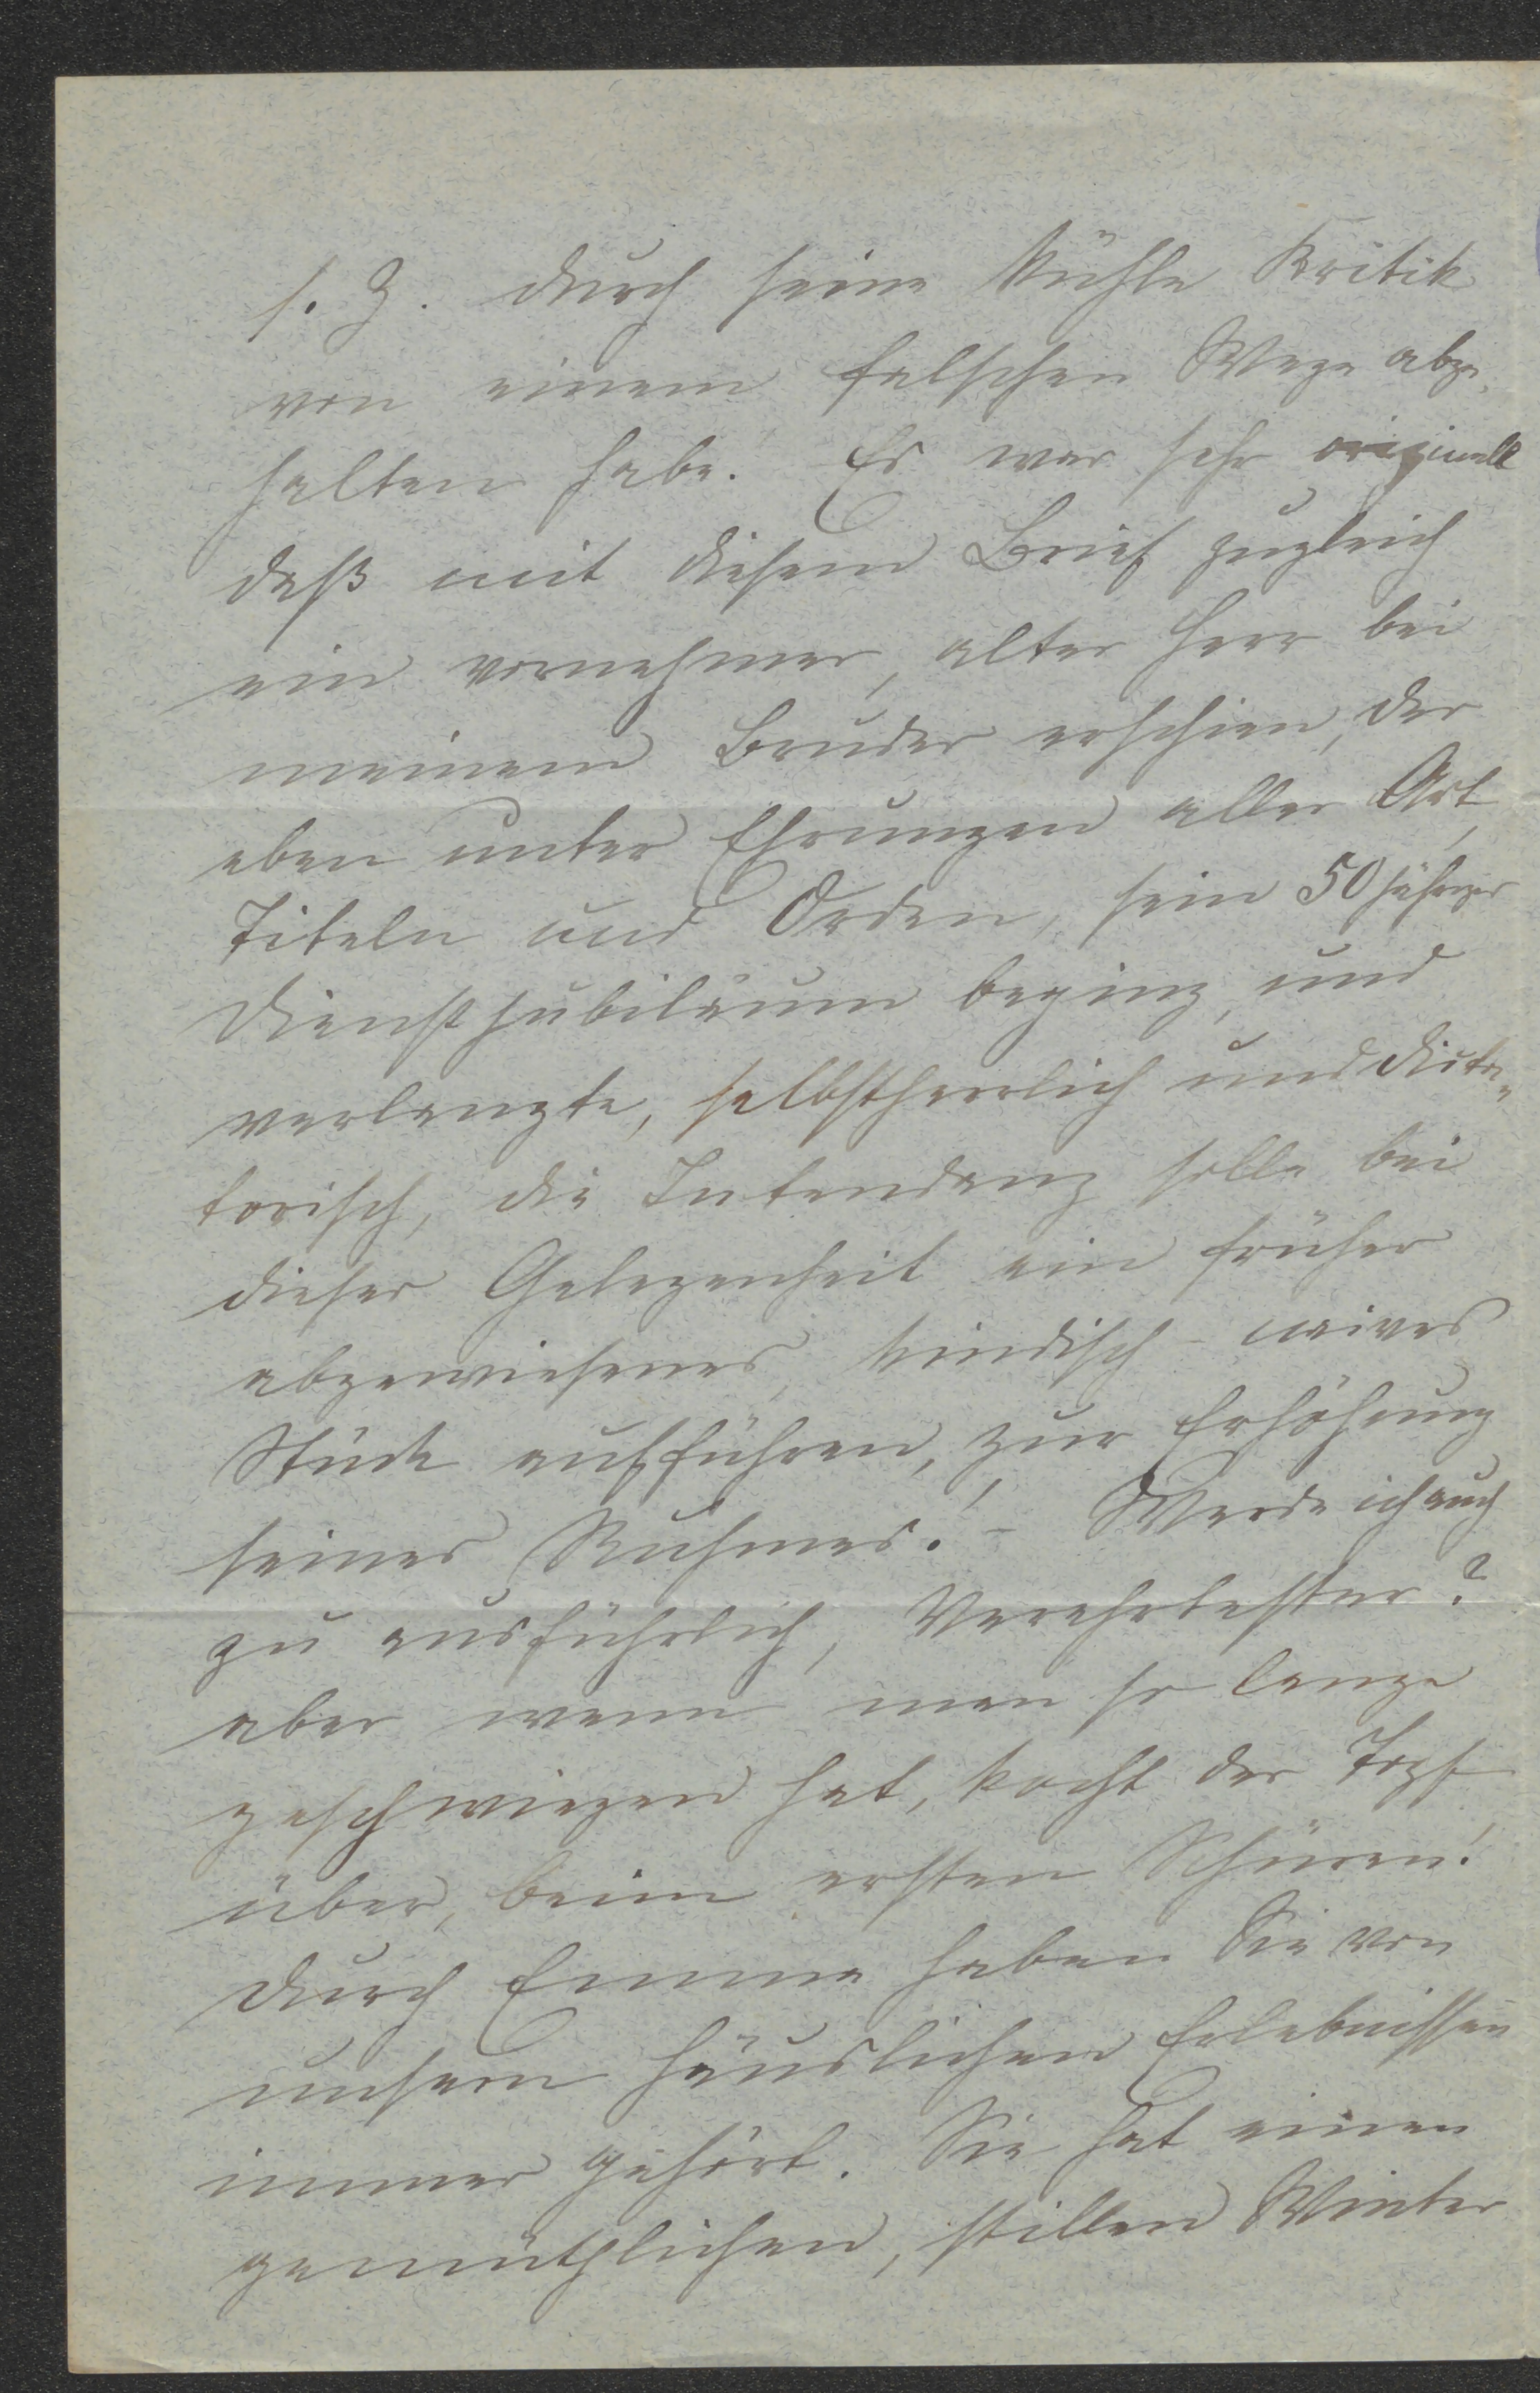 s. Z. durch seine kühle Kritik
von einem falschen Wege abge-
halten habe! Es war sehr originell
daß mit diesem Brief zugleich
ein vornehmer, alter Herr bei
meinem Bruder erschien, der
eben unter Ehrungen aller Art,
Titeln und Orden, sein 50jähriges
Dienstjubiläum beging, und
verlangte, selbstherrlich und dicta-
torisch, die Intendanz solle bei
dieser Gelegenheit ein früher
abgewiesenes, kindisch-naives
Stück aufführen, zur Erhöhung
seines Ruhmes! - Werde ich auch
zu ausführlich, Verehrtester?
aber wenn man so lange
geschwiegen hat, kocht der Topf
über, beim ersten Schüren!
Durch Emma haben Sie von
unsern häuslichen Erlebnissen
immer gehört. Sie hat einen
gemüthlichen, stillen Winter